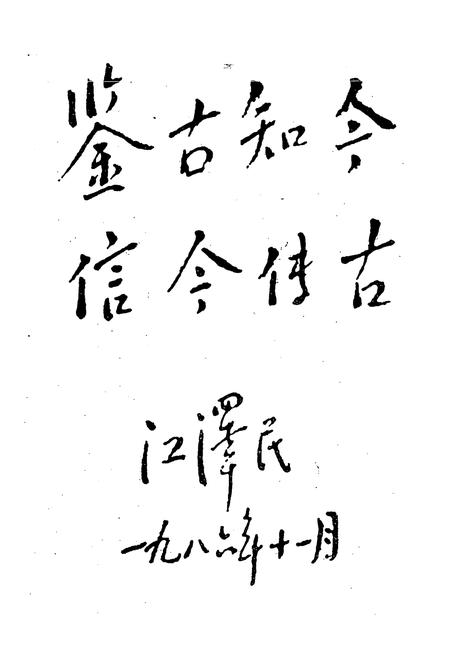 鉴古知今
信今传古
江澤民
一九八六年十一月